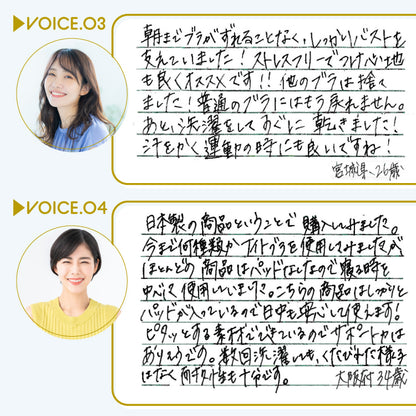 VOICE.03
朝までブラがずれることなく、しっかりバストを
支えていました！ストレスフリーでつけ心地
も良くオススメです！！他のブラは捨て
ました！普通のブラにはもう戻れません。
あと、洗濯をしてすぐに乾きました！
汗をかく運動の時にも良いですね！
宮城県、26歳
VOICE.04
日本製の商品ということで購入しみました。
今まで何種類かナイトブラを使用してみましたが
ほとんどの商品はパッドなしなので寝る時を
中心に使用していました。こちらの商品はしっかりと
パッドが入っているので日中も安心して使えます！
ピタッとする素材でできているのでサポート力は
ありそうです。数回洗濯しも、くたびれた様子
はなく耐久性も十分です。
大阪府 34歳